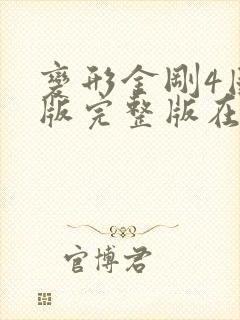 變形金剛4
版完整版在
官博君